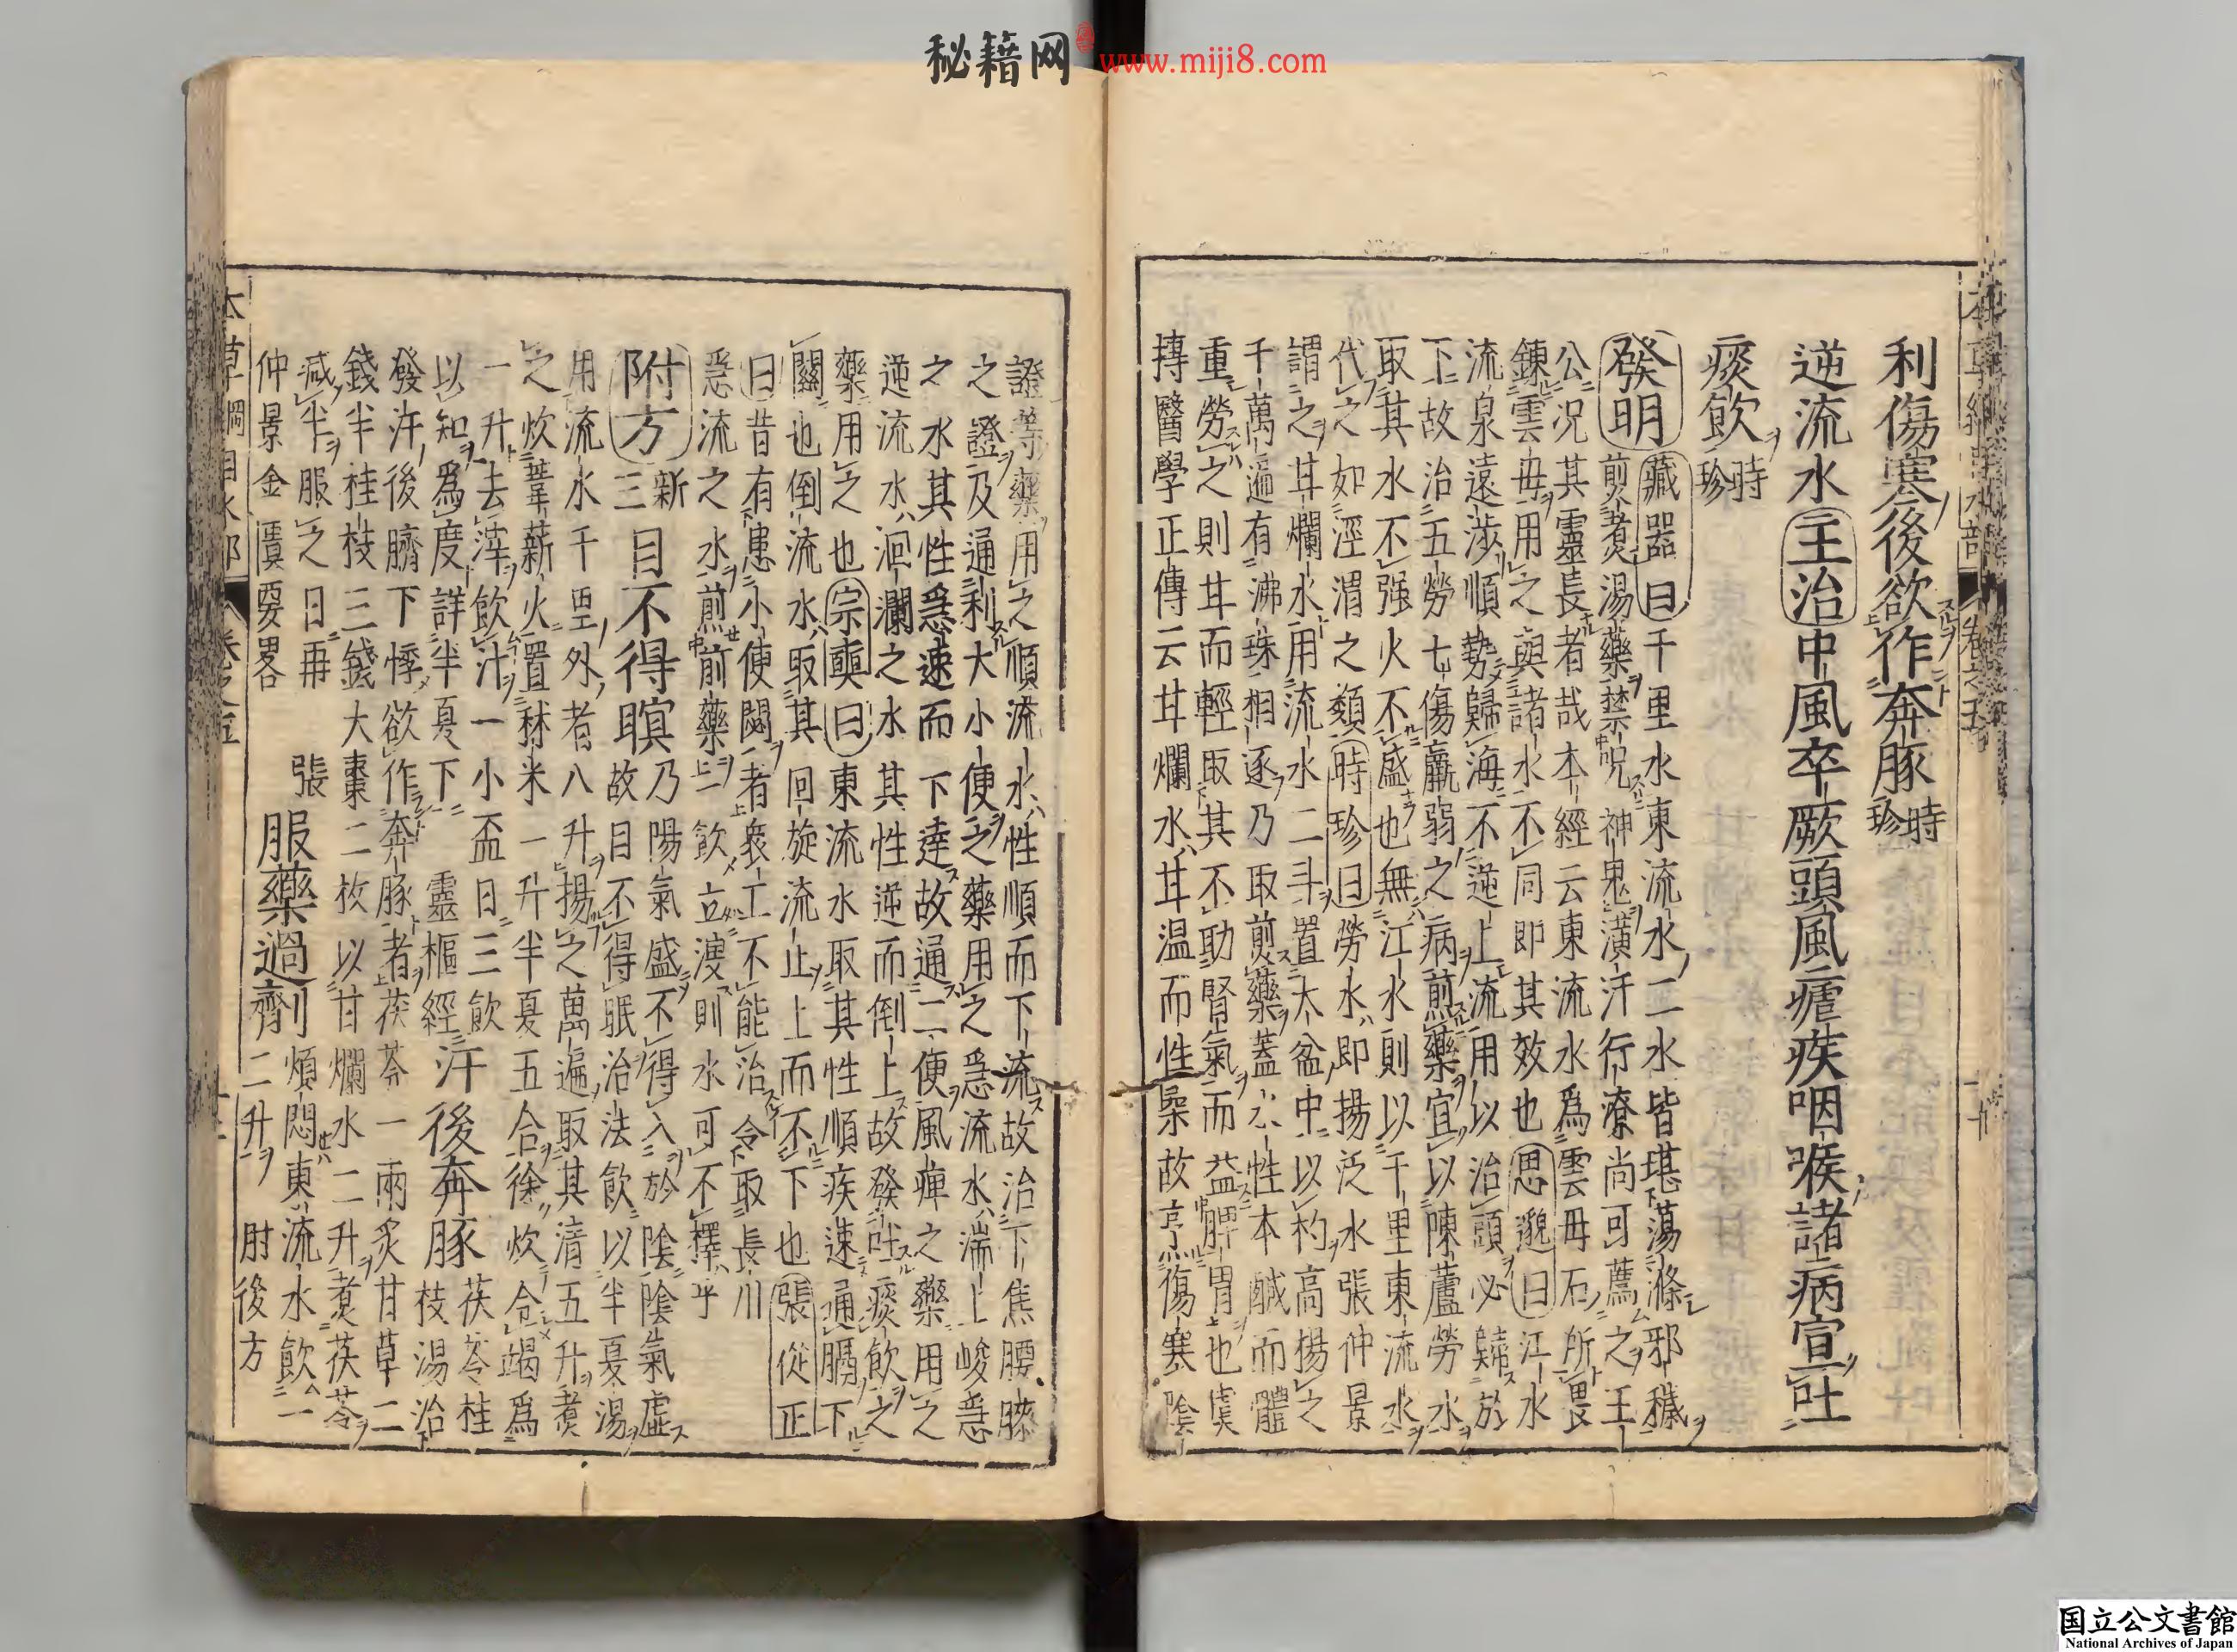 秘籍网 www.miji8.com
利傷寒後欲作奔豚時珍
逆流水主治中風卒厥頭風瘧疾咽喉諸病宣吐
痰飲時珍
發明藏器曰千里水東流水二水皆堪蕩滌邪穢
煎煮湯藥禁呪神鬼潢汙行潦尚可薦之王
公况其靈長者哉本經云東流水爲雲毋石所畏
鍊雲毋用之與諸水不同即其效也思邈曰江水
流泉遠涉順勢歸海不逆上流用以治頭必歸於
下故治五勞七傷羸弱之病煎藥宜以陳蘆勞水
取其水不强火不盛也無江水則以千里東流水
代之如涇渭之類時珍曰勞水即揚泛水張仲景
謂之甘爛水用流水二斗置大盆中以杓高揚之
千萬遍有沸珠相逐乃取煎藥蓋水性本鹹而體
重勞之則甘而輕取其不助腎氣而益脾胃也虞
摶醫學正傳云甘爛水甘温而性柔故烹傷寒陰
證等藥用之順流水性順而下流故治下焦腰膝
之證及通利大小便之藥用之急流水湍上峻急
之水其性急速而下達故通二便風痺之藥用之
逆流水洄瀾之水其性逆而倒上故發吐痰飲之
藥用之也宗奭曰東流水取其性順疾速通膈下
關也倒流水取其回旋流止上而不下也張從正
曰昔有患小便閟者衆工不能治令取長川
急流之水煎前藥一飲立溲則水可不擇乎
附方新三目不得瞑乃陽氣盛不得入於陰陰氣虛
故目不得眠治法飲以半夏湯
用流水千里外者八升揚之萬遍取其清五升煮
之炊葦薪火置秫米一升半夏五合徐炊令竭爲
一升去滓飲汁一小盃日三飲
以知爲度詳半夏下 靈樞經汗後奔豚茯苓桂
枝湯治
發汗後臍下悸欲作奔豚者茯苓一兩炙甘草二
錢半桂枝三錢大棗二枚以甘爛水二升煮茯苓
减半服之日再 張
仲景金匱要畧
服藥過劑煩悶東流水飲一
二升 肘後方
本草綱目水部 卷之五
国立公文書館
National Archives of Japan